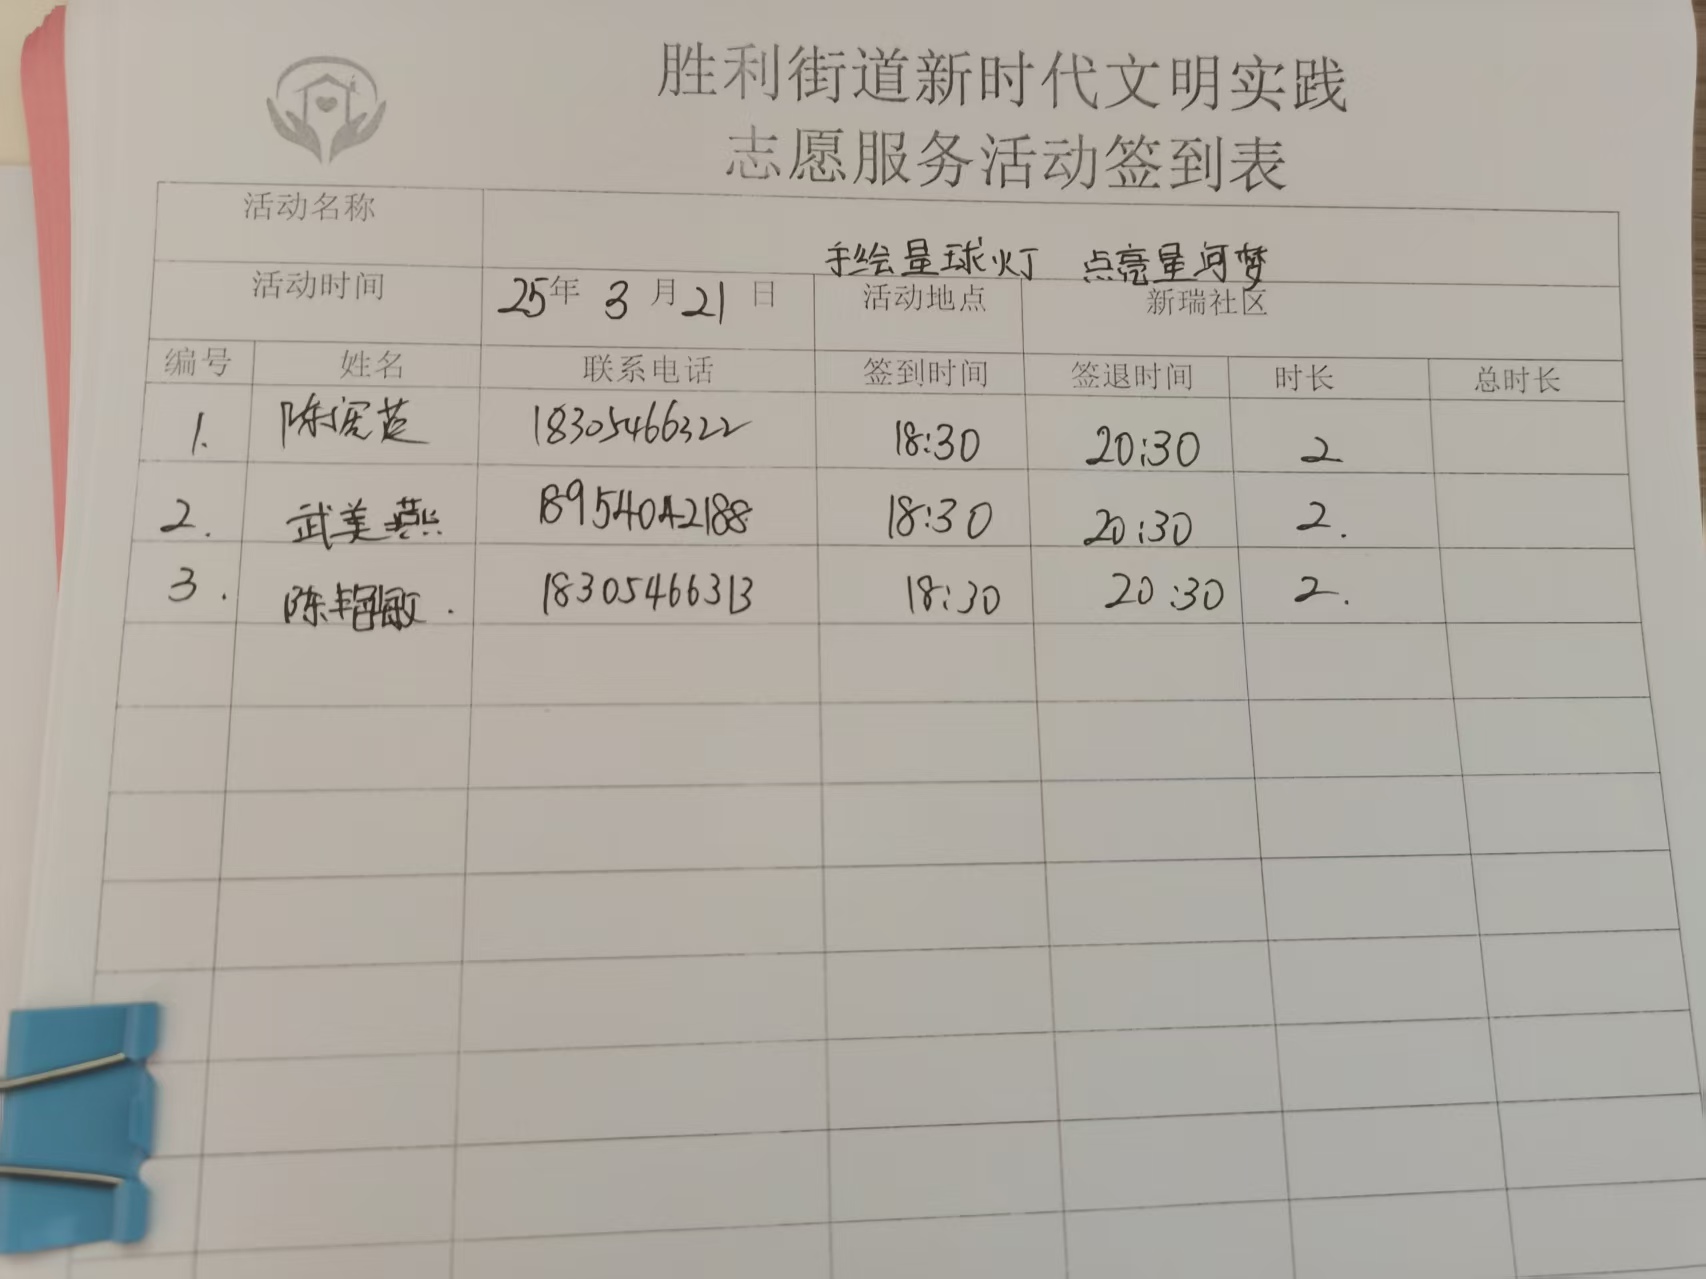 胜利街道新时代文明实践
志愿服务活动签到表
活动名称 手绘星球灯 点亮星河梦
活动时间 25年 3月21日 活动地点 新瑞社区
编号 姓名 联系电话 签到时间 签退时间 时长 总时长
1. 陈 18305466322 18:30 20:30 2
2. 武美燕 18954042188 18:30 20:30 2.
3. 陈艳敏. 18305466313 18:30 20:30 2.